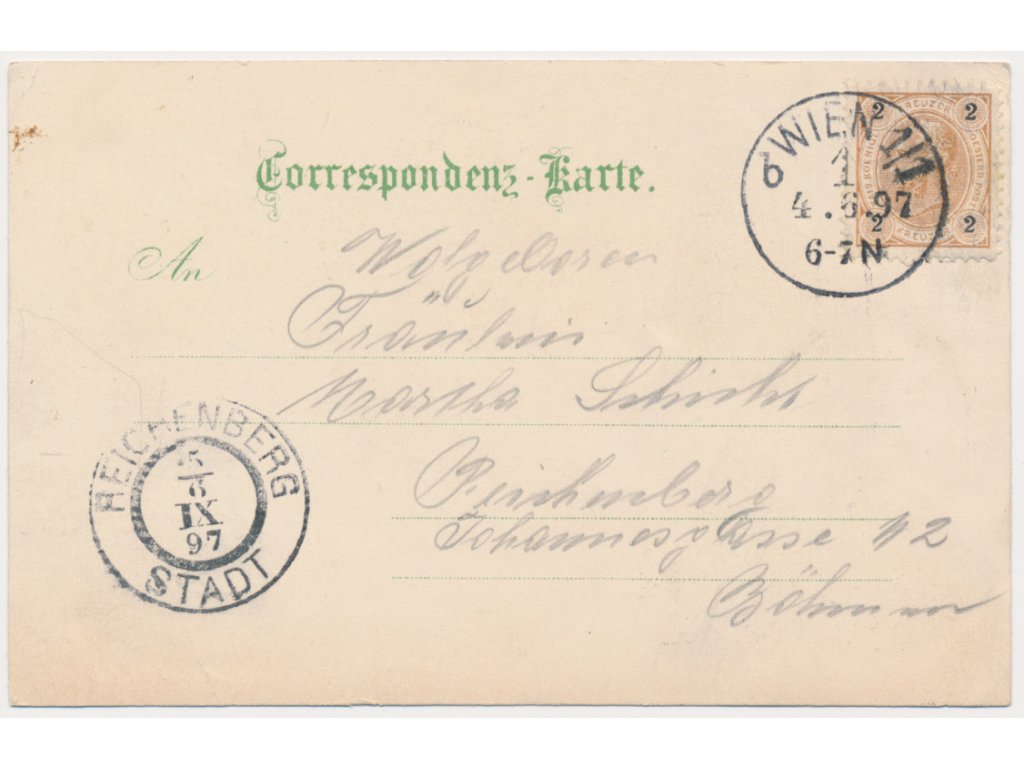 Correspondenz-Karte.
WIEN 1/1
b 1
4.6.97
6-7N
2 2
2 2
KREUZER
An Wolgeboren
Fräulein
Martha Schicht
Reichenberg
Johannesgasse
Böhmen
REICHENBERG
5
6
IX
97
STADT